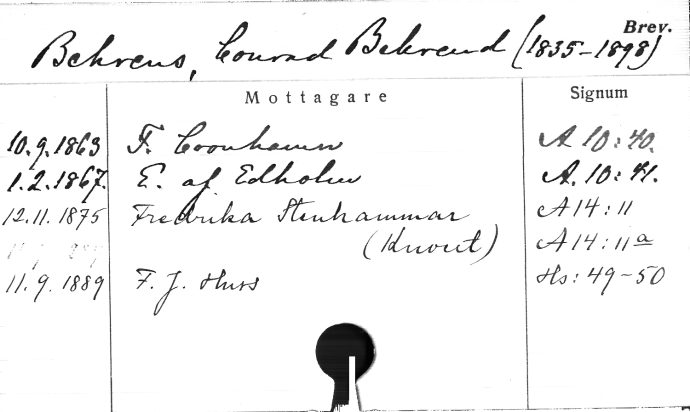 Brev.
Behrens, Conrad Behrend (1835-1898)
Mottagare Signum
10.9.1863 F. Cronhamn A 10:40.
1.2.1867. E. af Edholm A. 10:41.
12.11.1875 Fredrika Stenhammar A 14:11
(Kuvert) A 14:11a
11.9.1889 F. J. Huss Hs: 49-50